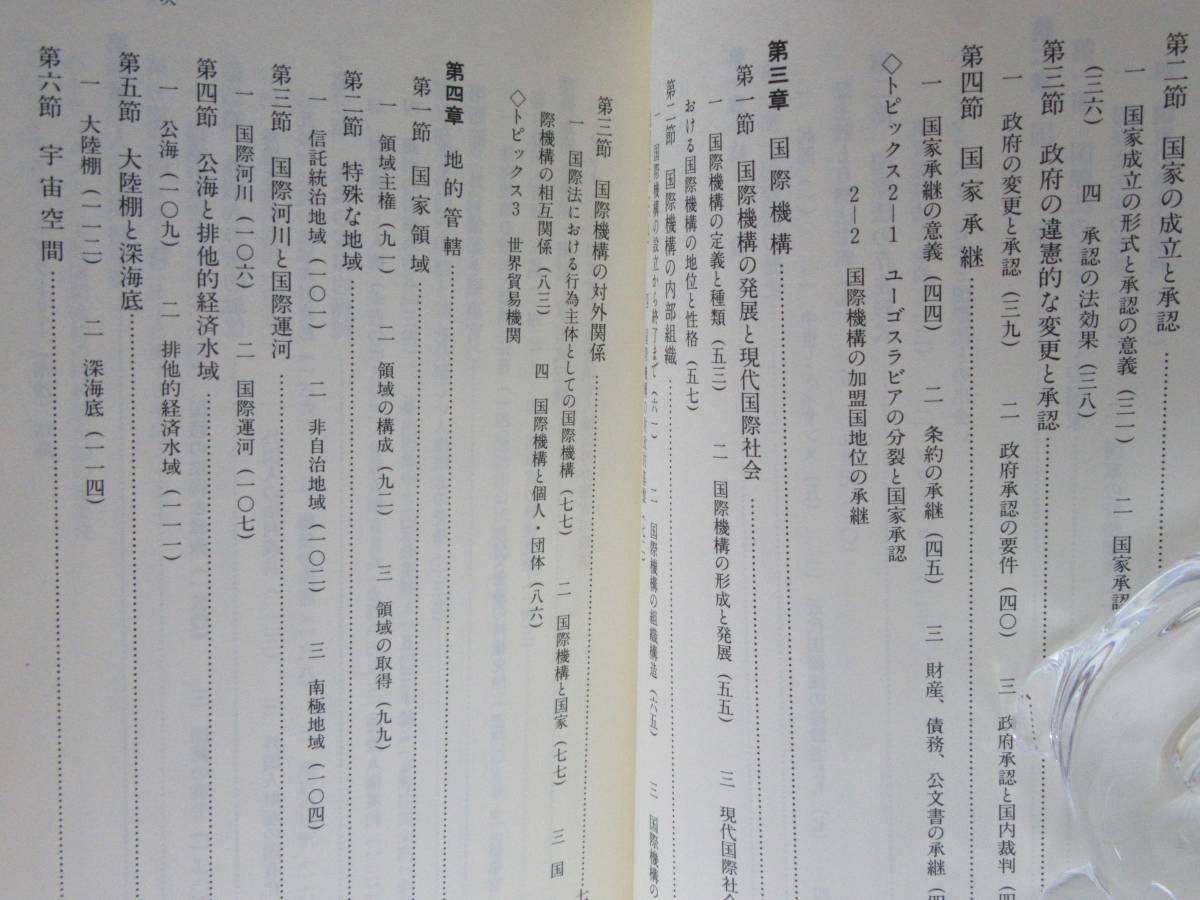 第二節　国家の成立と承認
一　国家成立の形式と承認の意義（三一）　二　国家承認
（三六）　四　承認の法効果（三八）
第三節　政府の違憲的な変更と承認
一　政府の変更と承認（三九）　二　政府承認の要件（四〇）　三　政府承認と国内裁判（四
第四節　国家承継
一　国家承継の意義（四四）　二　条約の承継（四五）　三　財産、債務、公文書の承継（四
◇トピックス2―1　ユーゴスラビアの分裂と国家承認
2―2　国際機構の加盟国地位の承継
第三章　国際機構
第一節　国際機構の発展と現代国際社会
一　国際機構の定義と種類（五三）　二　国際機構の形成と発展（五五）　三　現代国際社会
おける国際機構の地位と性格（五七）
第二節　国際機構の内部組織
一　国際機構の設立から終了まで（六一）　二　国際機構の組織構造（六五）　三　国際機構の
第三節　国際機構の対外関係
一　国際法における行為主体としての国際機構（七七）　二　国際機構と国家（七七）　三　国
際機構の相互関係（八三）　四　国際機構と個人・団体（八六）
◇トピックス3　世界貿易機関
第四章　地的管轄
第一節　国家領域
一　領域主権（九一）　二　領域の構成（九二）　三　領域の取得（九九）
第二節　特殊な地域
一　信託統治地域（一〇一）　二　非自治地域（一〇二）　三　南極地域（一〇四）
第三節　国際河川と国際運河
一　国際河川（一〇六）　二　国際運河（一〇七）
第四節　公海と排他的経済水域
一　公海（一〇九）　二　排他的経済水域（一一一）
第五節　大陸棚と深海底
一　大陸棚（一一二）　二　深海底（一一四）
第六節　宇宙空間